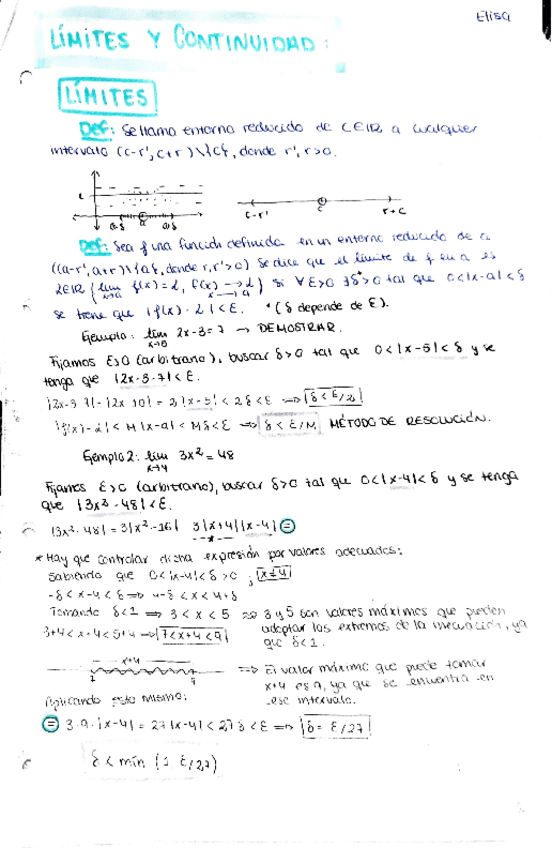 Elisa
LÍMITES Y CONTINUIDAD:
LÍMITES
Def: Se llama entorno reducido de C∈IR a cualquier
intervalo (c-r', c+r)\{c}, donde r', r>0.
L
a-δ a a+δ
c-r' c r+c
Def: Sea f una función definida en un entorno reducido de a
((a-r', a+r)\{a}, donde r, r'>0) Se dice que el límite de f en a es
L∈IR { lim x→a f(x)=L, f(x) → L x→a } si ∀ε>0 ∃δ*>0 tal que 0<|x-a|<δ
se tiene que |f(x)-L|<ε. *(δ depende de ε).
Ejemplo: lim x→5 2x-3=7 → DEMOSTRAR.
Fijamos ε>0 (arbitrario), buscar δ>0 tal que 0<|x-5|<δ y se
tenga que |2x-3-7|<ε.
|2x-3-7|=|2x-10|=2|x-5|<2δ<ε ⟹ δ<ε/2
|f(x)-L|<M|x-a|<Mδ<ε ⟹ δ<ε/M, MÉTODO DE RESOLUCIÓN.
Ejemplo 2: lim x→4 3x²=48
Fijamos ε>0 (arbitrario), buscar δ>0 tal que 0<|x-4|<δ y se tenga
que |3x²-48|<ε.
|3x²-48|=3|x²-16| 3|x+4||x-4| =
* Hay que controlar dicha expresión por valores adecuados:
Sabiendo que 0<|x-4|<δ>0 ; x≠4
-δ<x-4<δ ⟹ 4-δ<x<4+δ
Tomando δ<1 ⟹ 3<x<5 ⟹ 3 y 5 son valores máximos que pueden
adoptar los extremos de la inecuación, ya
que δ<1.
3+4<x+4<5+4 ⟹ 7<x+4<9
x+4
7 9
⟹ El valor máximo que puede tomar
x+4 es 9, ya que se encuentra en
ese intervalo.
Aplicando esto mismo:
= 3·9·|x-4|=27|x-4|<27δ<ε ⟹ δ=ε/27
δ<mín (1 ε/27)